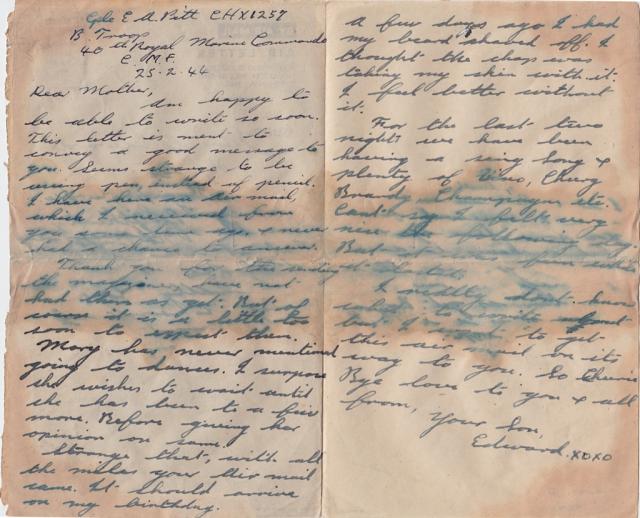 Cple E A Pitt CHX1257
B Troop
40th Royal Marine Commando
C.M.F.
25-2-44
Dear Mother,
Am happy to
be able to write so soon.
This letter is ment to
convey a good message to
you. Seems strange to be
using pen, instead of pencil.
I have here an Air mail,
which I received from
you some time ago, & never
had a chance to answer.
Thank you for the sending
the magazines, have not
had them as yet. But of
course it is a little too
soon to expect them.
Mary has never mentioned
going to dances. I suppose
she wishes to wait until
she has been to a few
more. Before giving her
opinion on same.
Strange that, with all
the miles your Air mail
came. It should arrive
on my birthday.
A few days ago I had
my beard shaved off. I
thought the chap was
taking my skin with it.
I feel better without
it.
For the last two
nights we have been
having a sing song &
plenty of Vino, Cherry
Brandy, Champagne, etc.
Cant say I felt very
nice the following day.
But it was fun while
it lasted.
I really dont know
what to write about
but I want to get
this air mail on its
way to you. So Cheerio
Bye love to you & all
from, Your Son,
Edward. XOXO